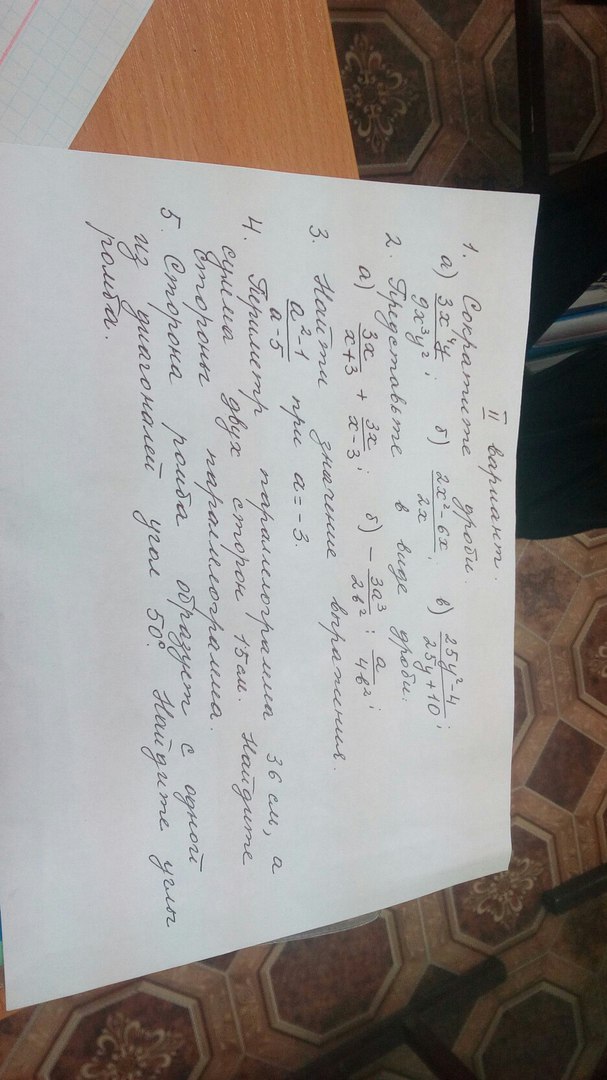 II вариант.
1. Сократите дроби.
а) 3x⁴y/9x³y²; б) 2x²-6x/2x, в) 25y²-4/25y+10;
2. Представьте в виде дроби:
а) 3x/x+3 + 3x/x-3; б) - 3a³/2b² : a/4b²;
3. Найти значение выражения.
a²-1/a-5 при a=-3.
4. Периметр параллелограмма 36 см, а
сумма двух сторон 15 см. Найдите
стороны параллелограмма.
5. Сторона ромба образует с одной
из диагоналей угол 50°. Найдите углы
ромба.